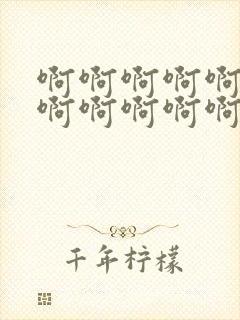 啊啊啊啊啊
啊啊啊啊啊
千年柠檬